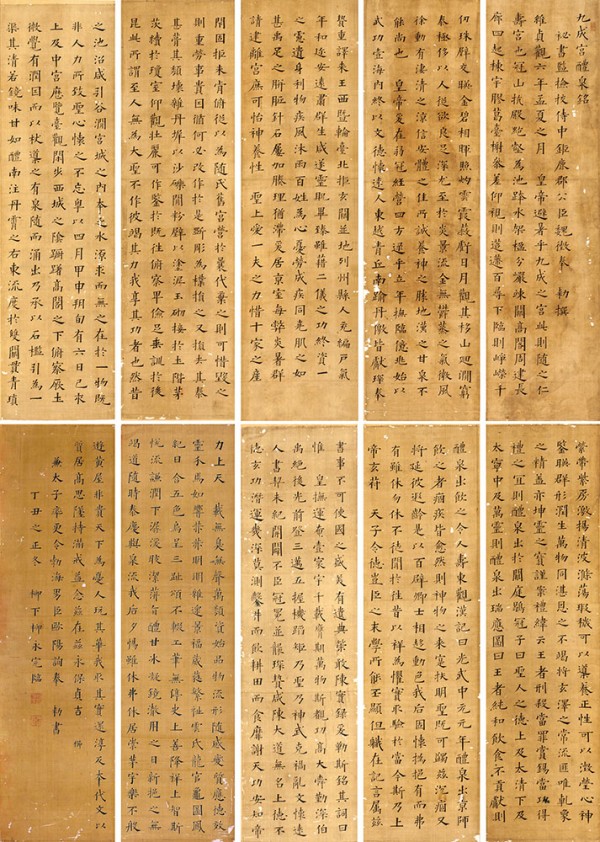 九成宮醴泉銘
祕書監檢校侍中鉅鹿郡公臣魏徵奉 勅撰
維貞觀六年孟夏之月 皇帝避暑乎九成之宮此則隨之仁
壽宮也冠山抗殿絕壑為池跨水架楹分巖竦闕高閣周建長
廊四起棟宇膠葛臺榭參差仰視則迢遰百尋下臨則崢嶸千
仞珠璧交映金碧相暉照灼雲霞蔽虧日月觀其移山迴澗窮
泰極侈以人從欲良足深尤至於炎景流金無鬱蒸之氣微風
徐動有淒清之涼信安體之佳所誠養神之勝地漢之甘泉不
能尚也 皇帝爰在弱冠經營四方逮乎立年撫臨億兆始以
武功壹海內終以文德懷遠人東越青丘南踰丹徼皆獻琛奉
贄重譯來王西暨輪臺北拒玄闕並地列州縣人充編戶氣淑
年和迩安遠肅群生咸遂靈貺畢臻雖藉二儀之功終資一人
之慮遺身利物櫛風沐雨百姓為心憂勞成疾同堯肌之如腊
甚禹足之胼胝針石屢加腠理猶滯爰居京室每弊炎暑群下
請建離宮庶可怡神養性 聖上愛一夫之力惜十家之產深
閉固拒未肯俯從以為隨氏舊宮營於曩代棄之則可惜毀之
則重勞事貴因循何必改作於是斲彫為樸損之又損去其泰
甚葺其頹壞雜丹墀以沙礫間粉壁以塗泥玉砌接於土階茅
茨續於瓊室仰觀壯麗可作鑒於既往俯察卑儉足垂訓於後
昆此所謂至人無為大聖不作彼竭其力我享其功者也然昔
之池沼咸引谷澗宮城之內本乏水源求而無之在於一物既
非人力所致聖心之不忘粵以四月甲申朔旬有六日己亥
上及中宮歷覽臺觀閑步西城之陰躊躇高閣之下俯察厥土
微覺有潤因而以杖導之有泉隨而涌出乃承以石檻引為一
渠其清若鏡味甘如醴南注丹霄之右東流度於雙闕貫穿青瑣
縈帶紫房激揚清波滌蕩瑕穢可以導養正性可以澂瑩心神
鑒暎群形潤生萬物同湛恩之不竭將玄澤之常流匪唯乾象
之精蓋亦坤靈之寶謹案禮緯云王者刑殺當罪賞錫當功得
禮之宜則醴泉出於闕庭鶡冠子曰聖人之德上及太清下及
太寧中及萬靈則醴泉出瑞應圖曰王者純和飲食不貢獻則
醴泉出飲之令人壽東觀漢記曰光武中元元年醴泉出京師
飲之者痼疾皆愈然則神物之來寔扶明聖既可蠲茲沉痼又
將延彼遐齡是以百辟卿士相趨動色我后固懷撝挹推而弗
有雖休勿休不徒聞於往昔以祥為懼實取驗於當今斯乃上
帝玄符 天子令德豈臣之末學所能丕顯但職在記言屬茲
書事不可使國之盛美有遺典策敢陳實錄爰勒斯銘其詞曰
惟 皇撫運奄壹寰宇千載膺期萬物斯覩功高大舜勤深伯
禹絕後光前登三邁五握機蹈矩乃聖乃神武克禍亂文懷遠
人書契未紀開闢不臣冠冕並襲琛贄咸陳大道無名上德不
德玄功潛運幾深莫測鑿井而飲耕田而食靡謝天功安知帝
力上天之載無臭無聲萬類資始品物流形隨感變質應德效
靈介焉如響赫赫明明雜遝景福葳蕤繁祉雲氏龍官龜圖鳳
紀日含五色烏呈三趾頌不輟工筆無停史上善降祥上智斯
悅流謙潤下潺湲皎潔蓱旨醴甘冰凝鏡澈用之日新挹之無
竭道隨時泰慶與泉流我后夕惕雖休弗休居崇茅宇樂不般
遊黃屋非貴天下為憂人玩其華我取其實還淳反本代文以
質居高思墜持滿戒溢念茲在茲永保貞吉
兼太子率更令勃海男臣歐陽詢奉 勅書
丁丑之正冬 柳下柳永定臨